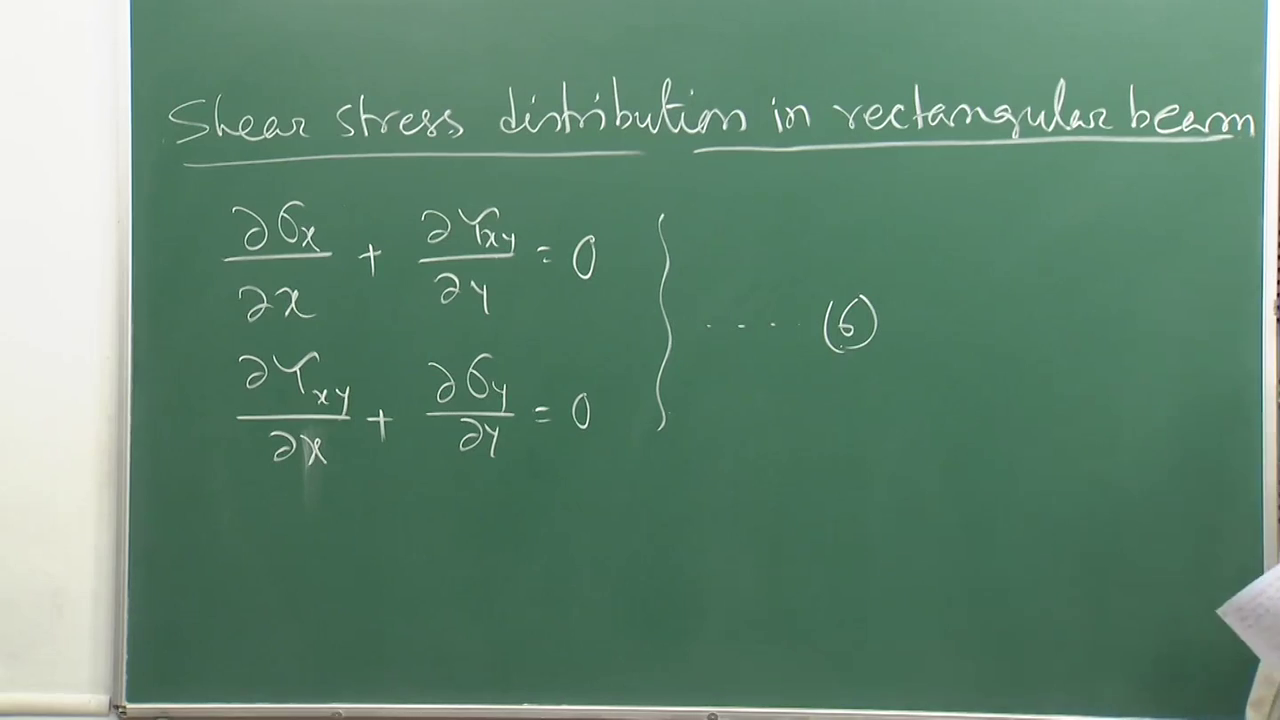 Shear stress distribution in rectangular beam
∂σx/∂x + ∂τxy/∂y = 0
.... (6)
∂τxy/∂x + ∂σy/∂y = 0